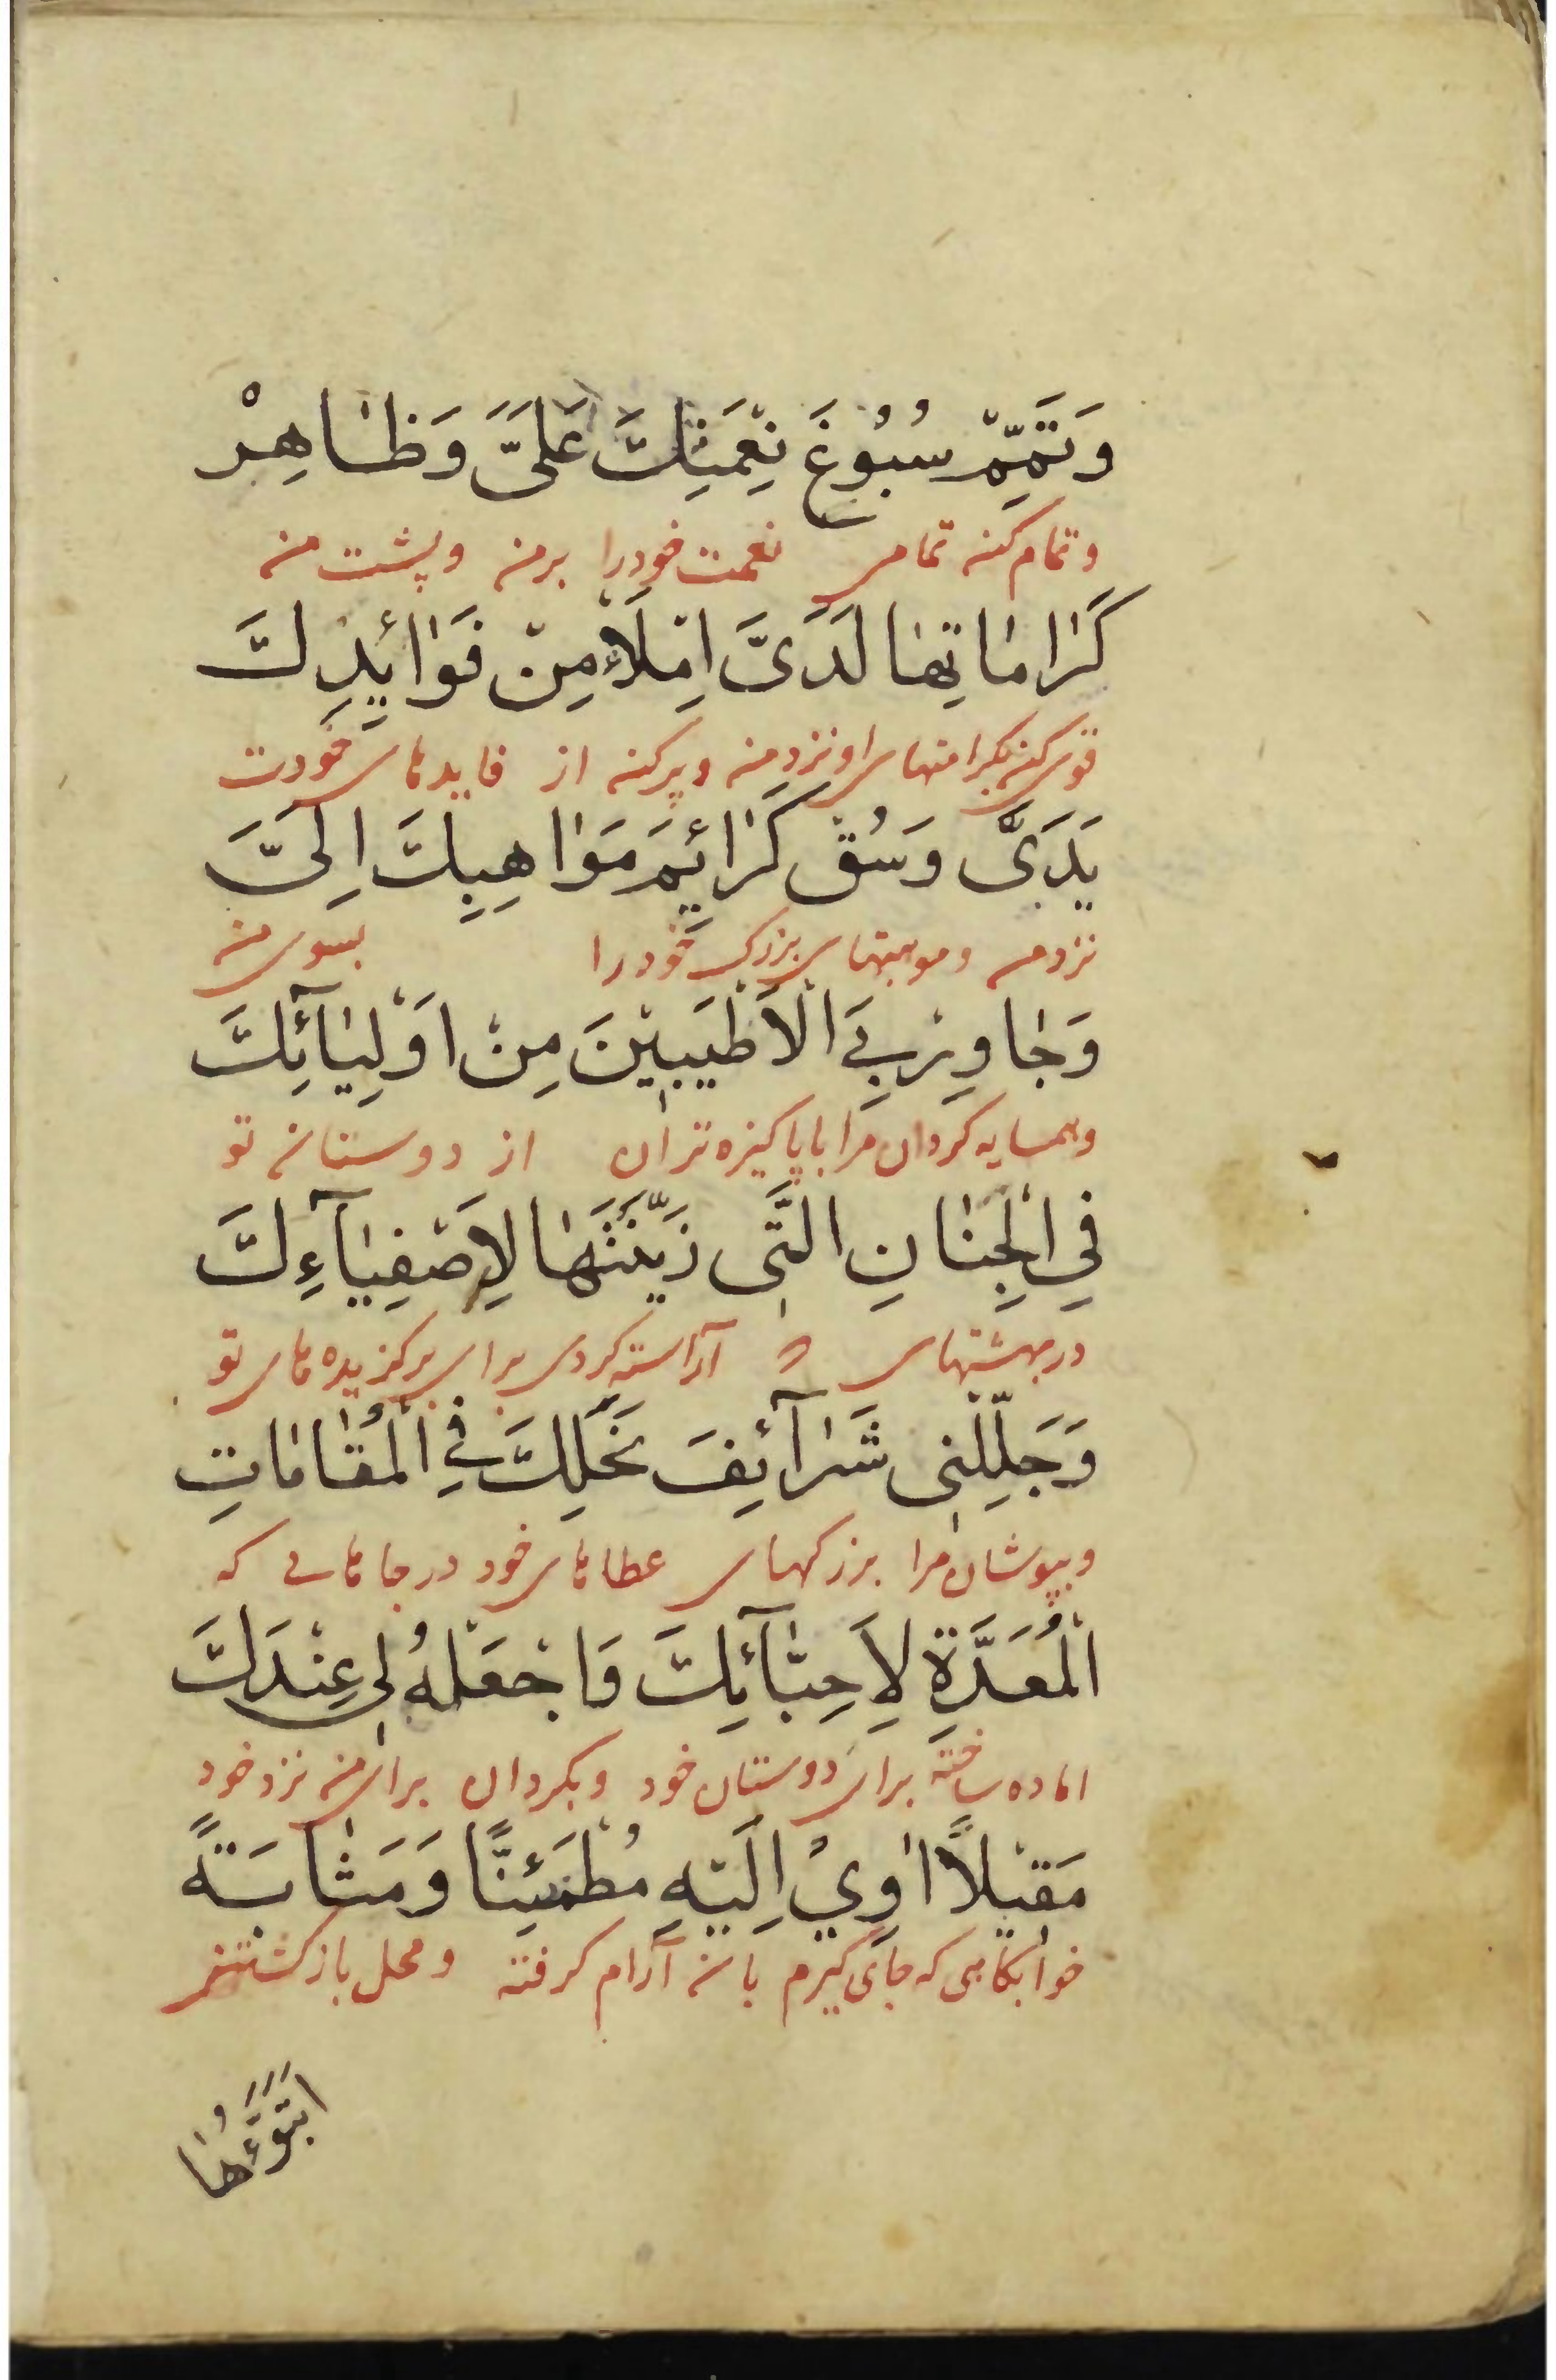 وَتَمِّمْ سُبُوغَ نِعْمَتِكَ عَلَىَّ وَظَاهِرْ
و تمام کن تمامی نعمت خود را بر من و پشت من
كَرٰامٰاتِهٰا لَدَىَّ اِمْلَاءْ مِنْ فَوٰائِدِكَ
قوی کن بکرامتهای او نزد من و پر کن از فایدهای خودت
يَدَىَّ وَسُقْ كَرٰائِمَ مَوٰاهِبِكَ اِلَىَّ
نزد من و موهبتهای بزرک خود را بسوی من
وَجٰاوِرْ بِىَ الْاَطْيَبِيْنَ مِنْ اَوْلِيٰآئِكَ
و همسایه کردان مرا با پاکیزه تران از دوستان تو
فِي الْجِنٰانِ الَّتٖى زَيَّنْتَهٰا لِاَصْفِيٰآءِكَ
در بهشتهای آراسته کردی برای برکزیده های تو
وَجَلِّلْنٖى شَرٰآئِفَ نِحَلِكَ فِي الْمُقٰامٰاتِ
و بپوشان مرا بزرکهای عطاهای خود در جاهای که
الْمُعَدَّةِ لِاَحِبّٰآئِكَ وَاجْعَلْهُ لٖى عِنْدَكَ
اماده ساخته برای دوستان خود و بکردان برای من نزد خود
مَقٖيْلًا اٰوِيْ اِلَيْهِ مُطْمَئِنًّا وَمَثٰابَةً
خوابکاهی که جای کیرم بان آرام کرفته و محل بازکشتنی
اَتَبَوَّءُهٰا